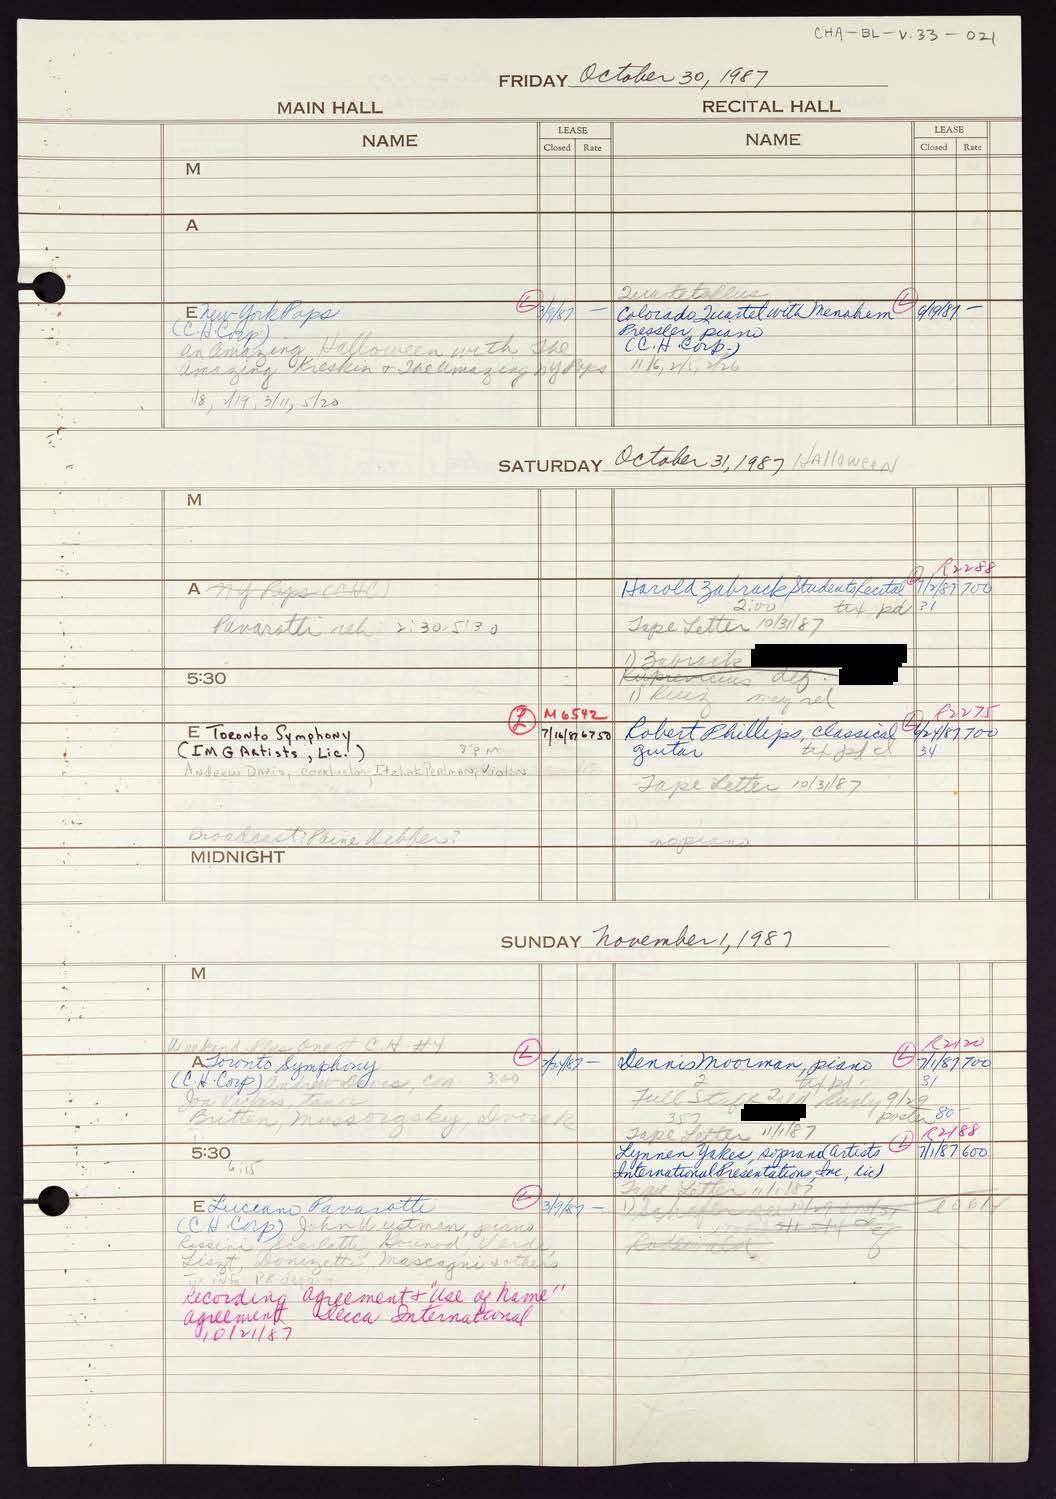 CHA-BL-V.33-021
FRIDAY October 30, 1987
MAIN HALL
RECITAL HALL
NAME
LEASE
Closed Rate
NAME
LEASE
Closed Rate
M
A
E New York Pops L 3/9/87 —
(C.H. Corp)
An Amazing Halloween with The
Amazing Kreskin & The Amazing NY Pops
1/8, 2/19, 3/11, 5/20
Colorado Quartet with Menahem L 9/9/87 —
Pressler, piano
(C.H. Corp.)
11/6, 2/5, 2/26
SATURDAY October 31, 1987 HALLOWEEN
M
A NY Pops (CHC)
Pavarotti reh 2:30-5:30
R2288
Harold Zabrack Students Recital L 7/2/87 700
2:00 tix pd 31
Tape Letter 10/31/87
1) Zabrack
def.
5:30
1)
L M6542
E Toronto Symphony 7/16/87 6750
(IMG Artists, Lic.) 8PM
Andrew Davis, conductor, Itzhak Perlman, Violin
Broadcast? Paine Webber?
R2275
Robert Phillips, classical L 6/24/87 700
guitar tix pd 34
Tape Letter 10/31/87
no piano
MIDNIGHT
SUNDAY November 1, 1987
M
Weekend Plus One at C.H. #4
A Toronto Symphony L 2/24/87 —
(C.H. Corp) Andrew Davis, con. 3:00
Jon Vickers, tenor
Britten, Mussorgsky, Dvorak
R2120
Dennis Moorman, piano L 7/1/87 700
2 tix pd. 31
Full Staff 9/29
357 poster 80-
Tape Letter 11/1/87
5:30
6:15
R2188
Lynnen Yakes, soprano (Artists L 7/1/87 600
International Presentations, Inc., Lic)
Tape Letter 11/1/87
E Luciano Pavarotti L 3/9/87 —
(C.H. Corp) John Wustman, piano
Rossini, Scarlatti, Gounod, Verdi,
Liszt, Donizetti, Mascagni & others
Recording Agreement & "Use of Name"
agreement Decca International
10/21/87